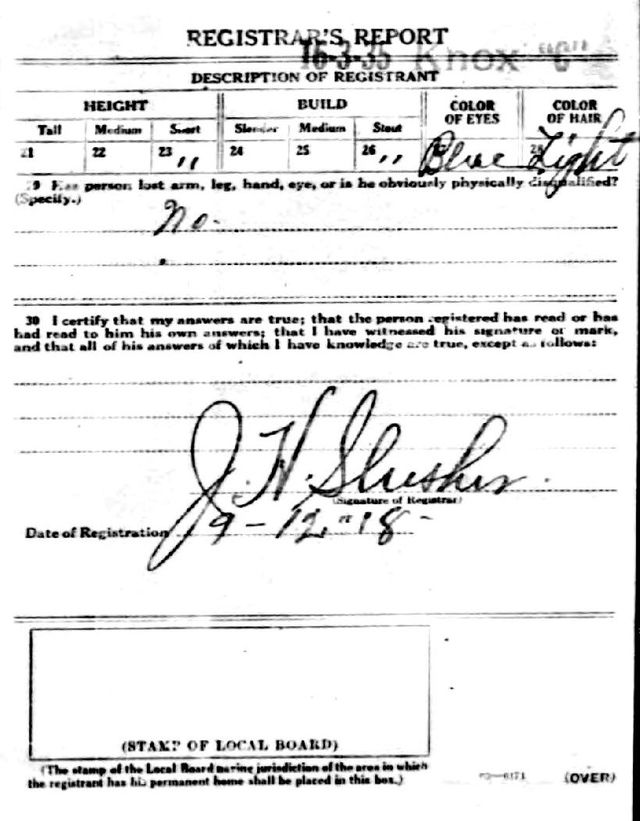 REGISTRAR'S REPORT
16-3-35 Knox "C"
DESCRIPTION OF REGISTRANT
HEIGHT BUILD COLOR OF EYES COLOR OF HAIR
Tall Medium Short Slender Medium Stout
21 22 23 " 24 25 26 " Blue 28 Light
29 Has person lost arm, leg, hand, eye, or is he obviously physically disqualified?
(Specify.)
No.
30 I certify that my answers are true; that the person registered has read or has
had read to him his own answers; that I have witnessed his signature or mark,
and that all of his answers of which I have knowledge are true, except as follows:
J. H. Slusher.
(Signature of Registrar)
Date of Registration 9-12-18-
(STAMP OF LOCAL BOARD)
(The stamp of the Local Board having jurisdiction of the area in which
the registrant has his permanent home shall be placed in this box.)
(OVER)